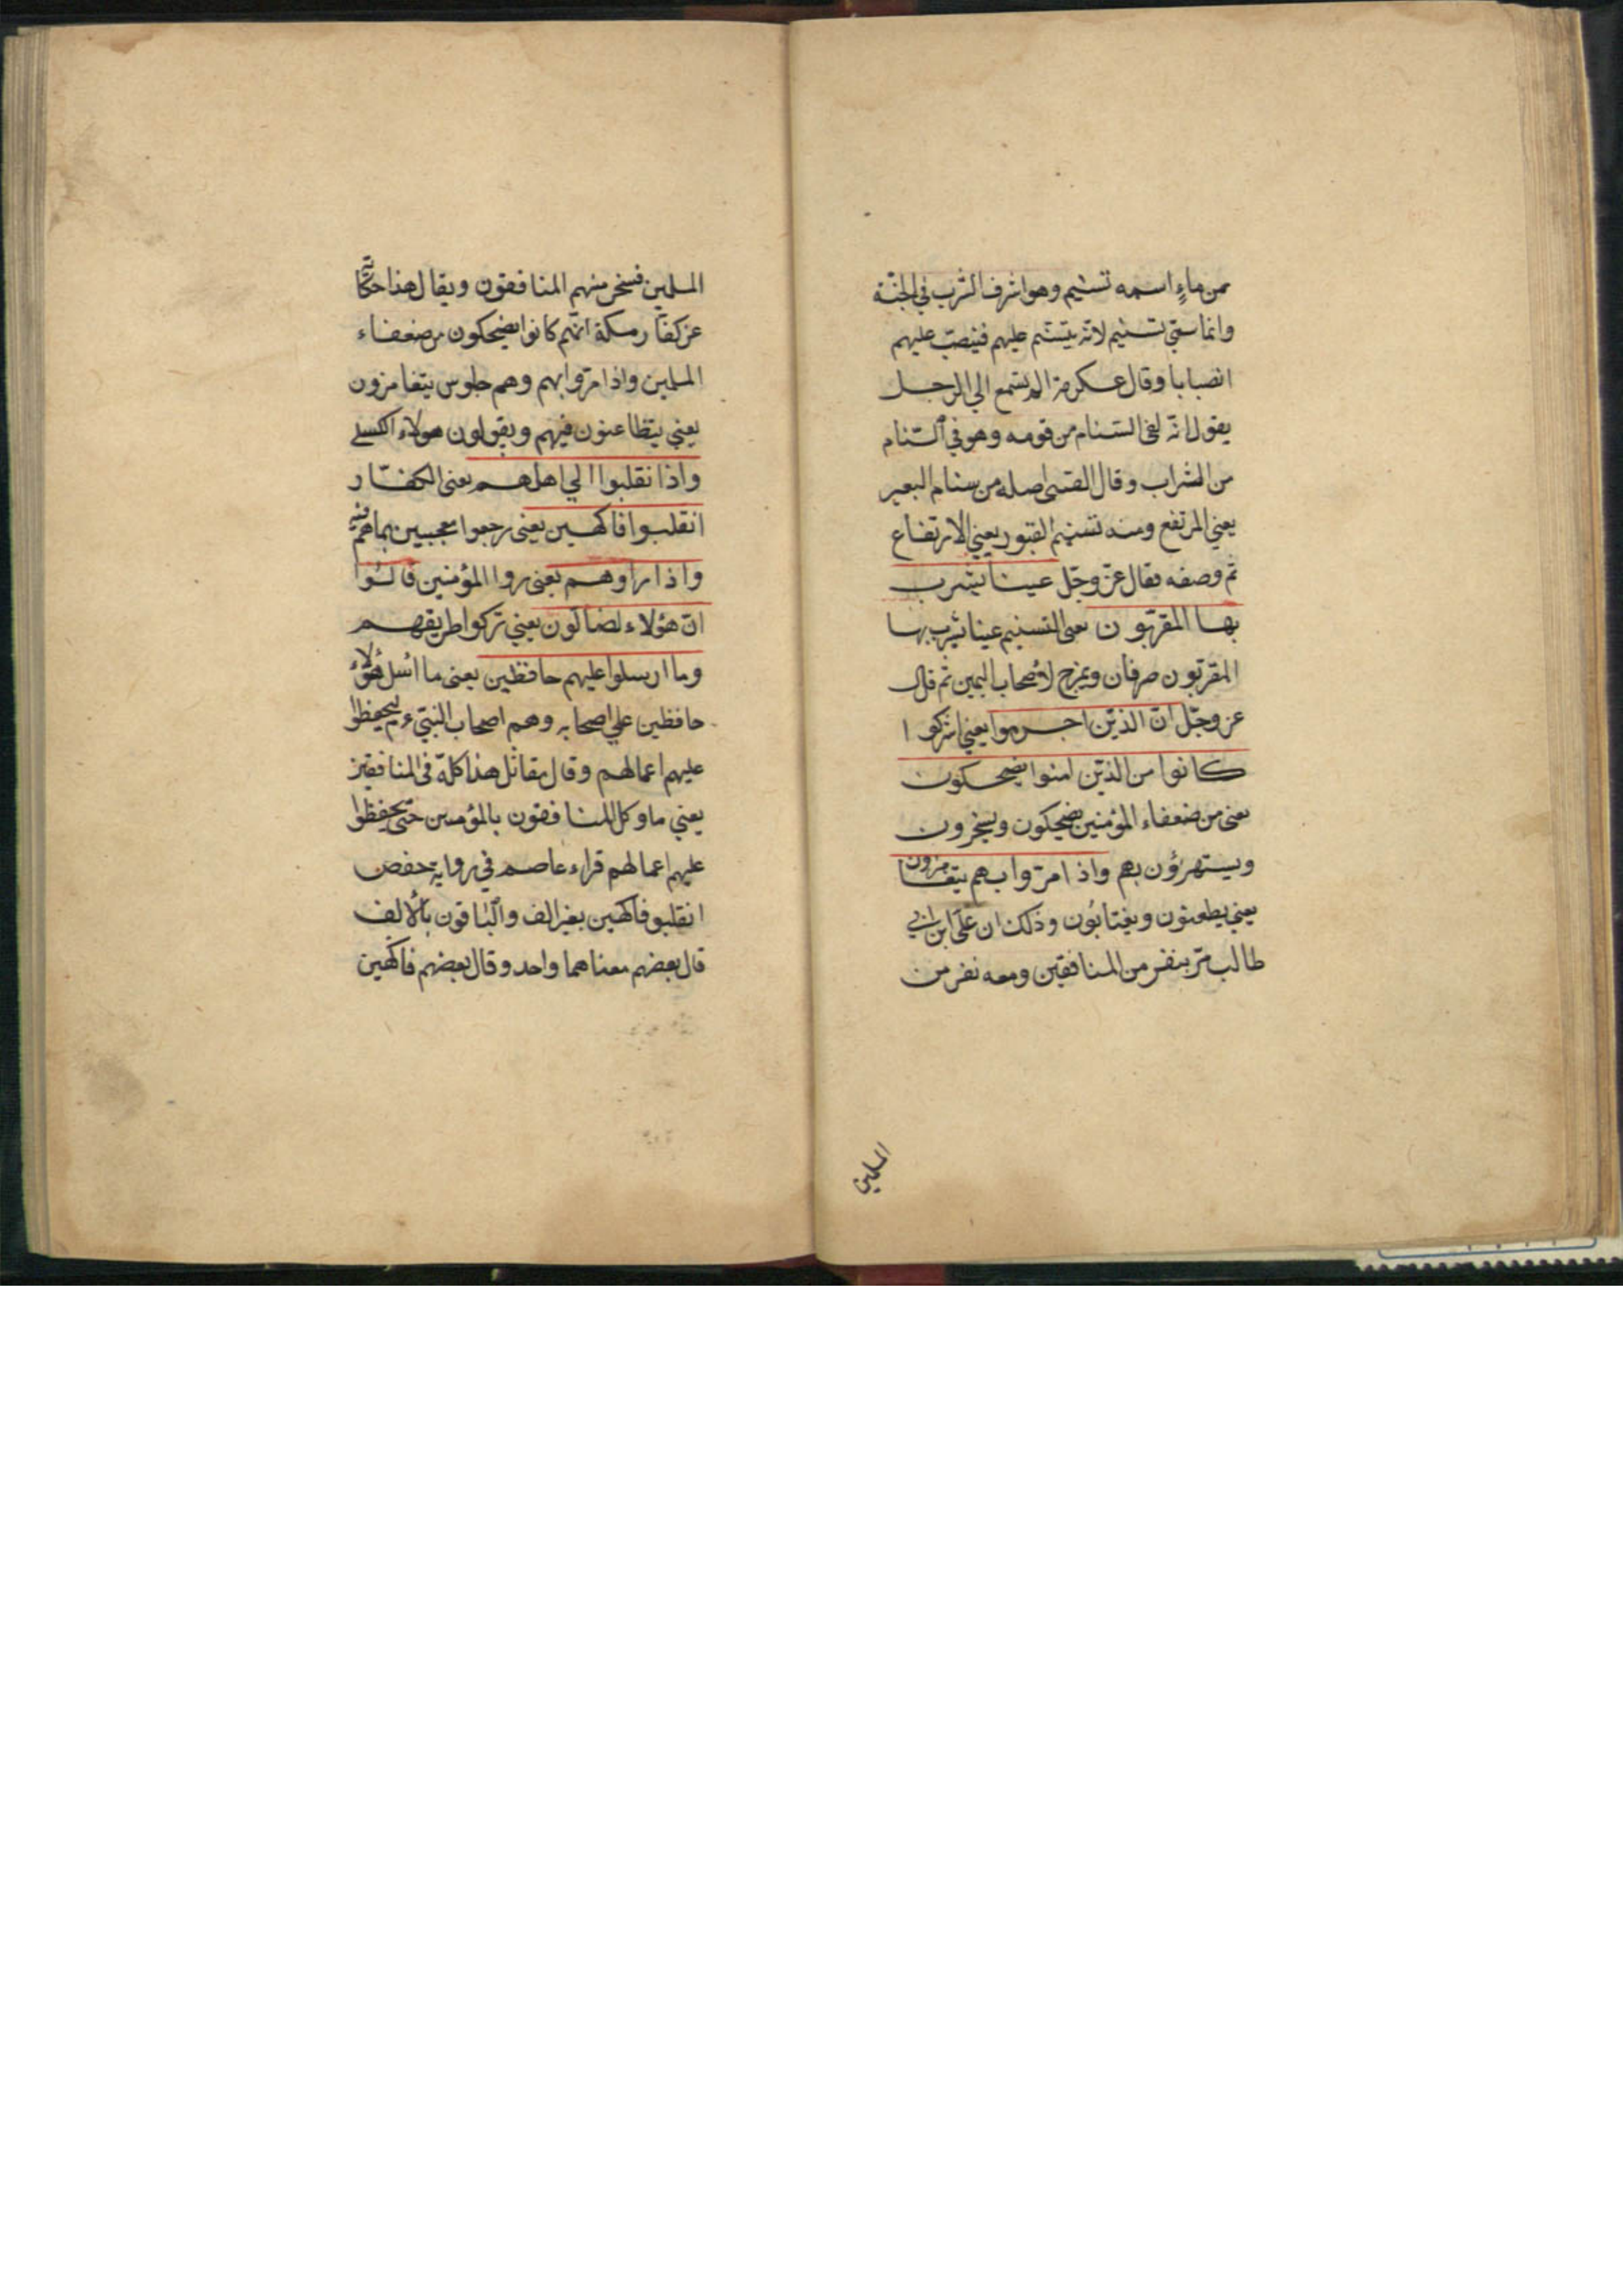 من ماءٍ اسمه تسنيم وهو اشرف الشرب في الجنّة
وانما سمّي تسنيم لانّه يتسنّم عليهم فينصبّ عليهم
انصبابا وقال عكرمة الم تسمع الي الرجل
يقول انّه لفي السّنام من قومه وهو في السّنام
من الشراب وقال القتبى اصله من سنام البعير
يعني المرتفع ومنه تسنيم القبور يعني الارتفاع
ثم وصفه فقال عزّ وجلّ عينا يشرب
بها المقرّبون يعنى التسنيم عينا يشرب بها
المقرّبون صرفان ويمزج لاصحاب اليمين ثم قال
عز وجلّ انّ الذين اجرموا يعني اشركوا
كانوا من الذين امنوا يضحكون
يعنى من ضعفاء المؤمنين يضحكون ويسخرون
ويستهزؤن بهم واذا مرّوا بهم يتغامزون
يعني يطعنون ويغتابون وذلك ان علىّ ابن ابي
طالب مرّ بنفر من المنافقين ومعه نفر من
المسلمين
المسلمين فسخر منهم المنافقون ويقال هذا حكاية
عن كفّار مكة انهم كانوا يضحكون من ضعفاء
المسلمين واذا مرّوا بهم وهم جلوس يتغامزون
يعني يتطاعنون فيهم ويقولون هولاء الكسلى
واذا نقلبوا الي اهلهم يعنى الكفّار
انقلبوا فاكهين يعنى رجعوا معجبين بما هم فيه
واذا راوهم يعنى روا المؤمنين قالوا
انّ هؤلاء لضالّون يعني تركوا طريقهم
وما ارسلوا عليهم حافظين يعنى ما ارسل هؤلاء
حافظين علي اصحابه وهم اصحاب النبيّ ء ليحفظوا
عليهم اعمالهم وقال مقاتل هذا كلّه فى المنافقين
يعني ما وكل المنافقون بالمؤمنين حتى يحفظوا
عليهم اعمالهم قراء عاصم في رواية حفص
انقلبو فاكهين بغير الف والباقون بالالف
قال بعضهم معناهما واحد وقال بعضهم فاكهين